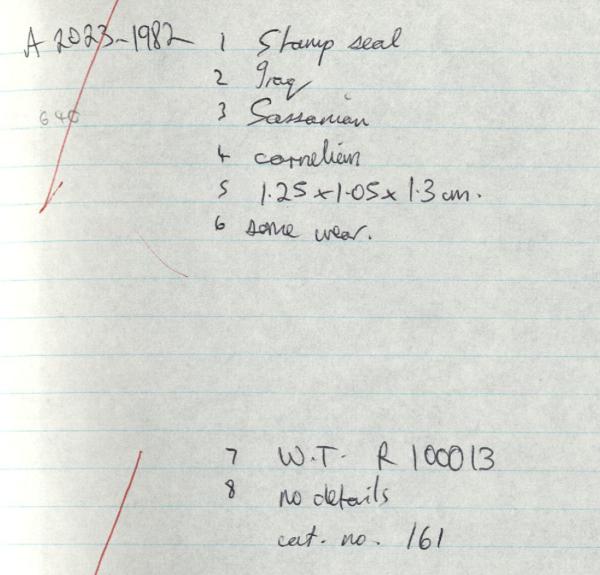 A 2023-1982 1 Stamp seal
2 Iraq
640 3 Sassanian
4 cornelian
5 1.25 x 1.05 x 1.3 cm.
6 some wear.
7 W.T. R 100013
8 no details
cat. no. 161